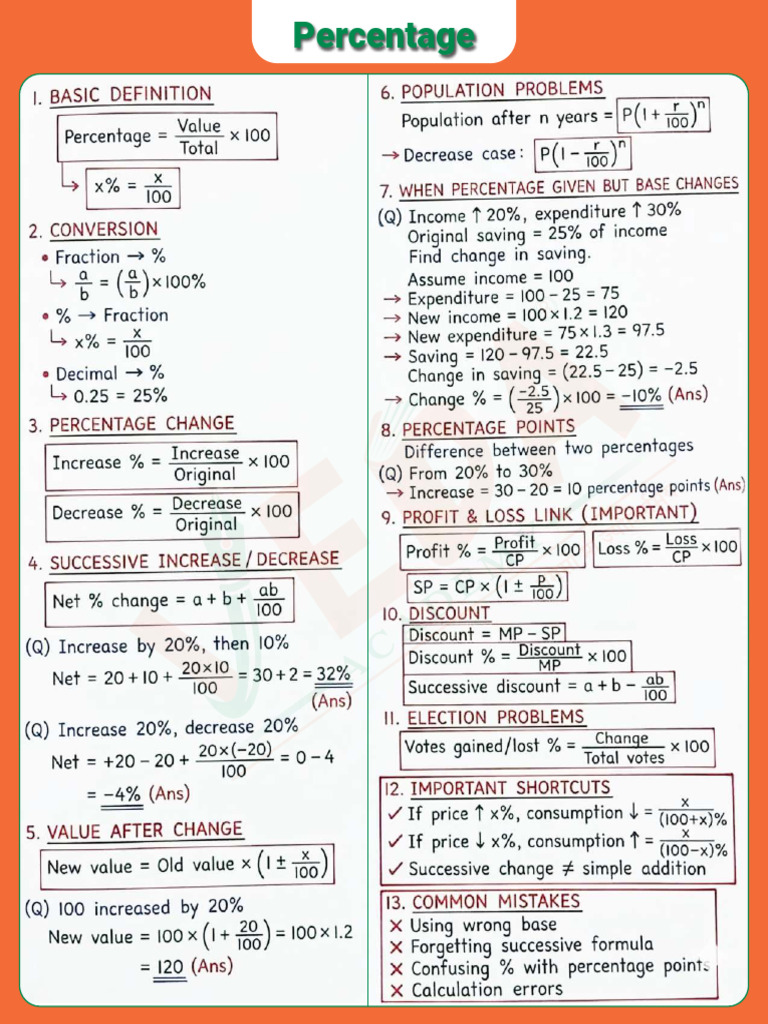 Percentage
1. BASIC DEFINITION
Percentage = Value/Total × 100
↳ x% = x/100
2. CONVERSION
• Fraction → %
↳ a/b = (a/b) × 100%
• % → Fraction
↳ x% = x/100
• Decimal → %
↳ 0.25 = 25%
3. PERCENTAGE CHANGE
Increase % = Increase/Original × 100
Decrease % = Decrease/Original × 100
4. SUCCESSIVE INCREASE / DECREASE
Net % change = a + b + ab/100
(Q) Increase by 20%, then 10%
Net = 20 + 10 + 20×10/100 = 30 + 2 = 32%
(Ans)
(Q) Increase 20%, decrease 20%
Net = +20 − 20 + 20×(−20)/100 = 0 − 4
= −4% (Ans)
5. VALUE AFTER CHANGE
New value = Old value × (1 ± x/100)
(Q) 100 increased by 20%
New value = 100 × (1 + 20/100) = 100 × 1.2
= 120 (Ans)
6. POPULATION PROBLEMS
Population after n years = P(1 + r/100)^n
→ Decrease case: P(1 − r/100)^n
7. WHEN PERCENTAGE GIVEN BUT BASE CHANGES
(Q) Income ↑ 20%, expenditure ↑ 30%
Original saving = 25% of income
Find change in saving.
Assume income = 100
→ Expenditure = 100 − 25 = 75
→ New income = 100 × 1.2 = 120
→ New expenditure = 75 × 1.3 = 97.5
→ Saving = 120 − 97.5 = 22.5
Change in saving = (22.5 − 25) = −2.5
→ Change % = (−2.5/25) × 100 = −10% (Ans)
8. PERCENTAGE POINTS
Difference between two percentages
(Q) From 20% to 30%
→ Increase = 30 − 20 = 10 percentage points (Ans)
9. PROFIT & LOSS LINK (IMPORTANT)
Profit % = Profit/CP × 100 Loss % = Loss/CP × 100
SP = CP × (1 ± p/100)
10. DISCOUNT
Discount = MP − SP
Discount % = Discount/MP × 100
Successive discount = a + b − ab/100
11. ELECTION PROBLEMS
Votes gained/lost % = Change/Total votes × 100
12. IMPORTANT SHORTCUTS
✓ If price ↑ x%, consumption ↓ = x/(100+x)%
✓ If price ↓ x%, consumption ↑ = x/(100−x)%
✓ Successive change ≠ simple addition
13. COMMON MISTAKES
✗ Using wrong base
✗ Forgetting successive formula
✗ Confusing % with percentage points
✗ Calculation errors